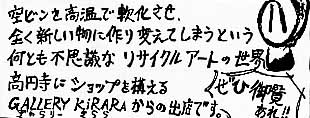 空ビンを高温で軟化させ、
全く新しい物に作り変えてしまうという
何とも不思議なリサイクルアートの世界
高円寺にショップを構える
GALLERY KiRARAからの出店です。
ぎゃらりー きらら
ぜひ御覧
あれ!!